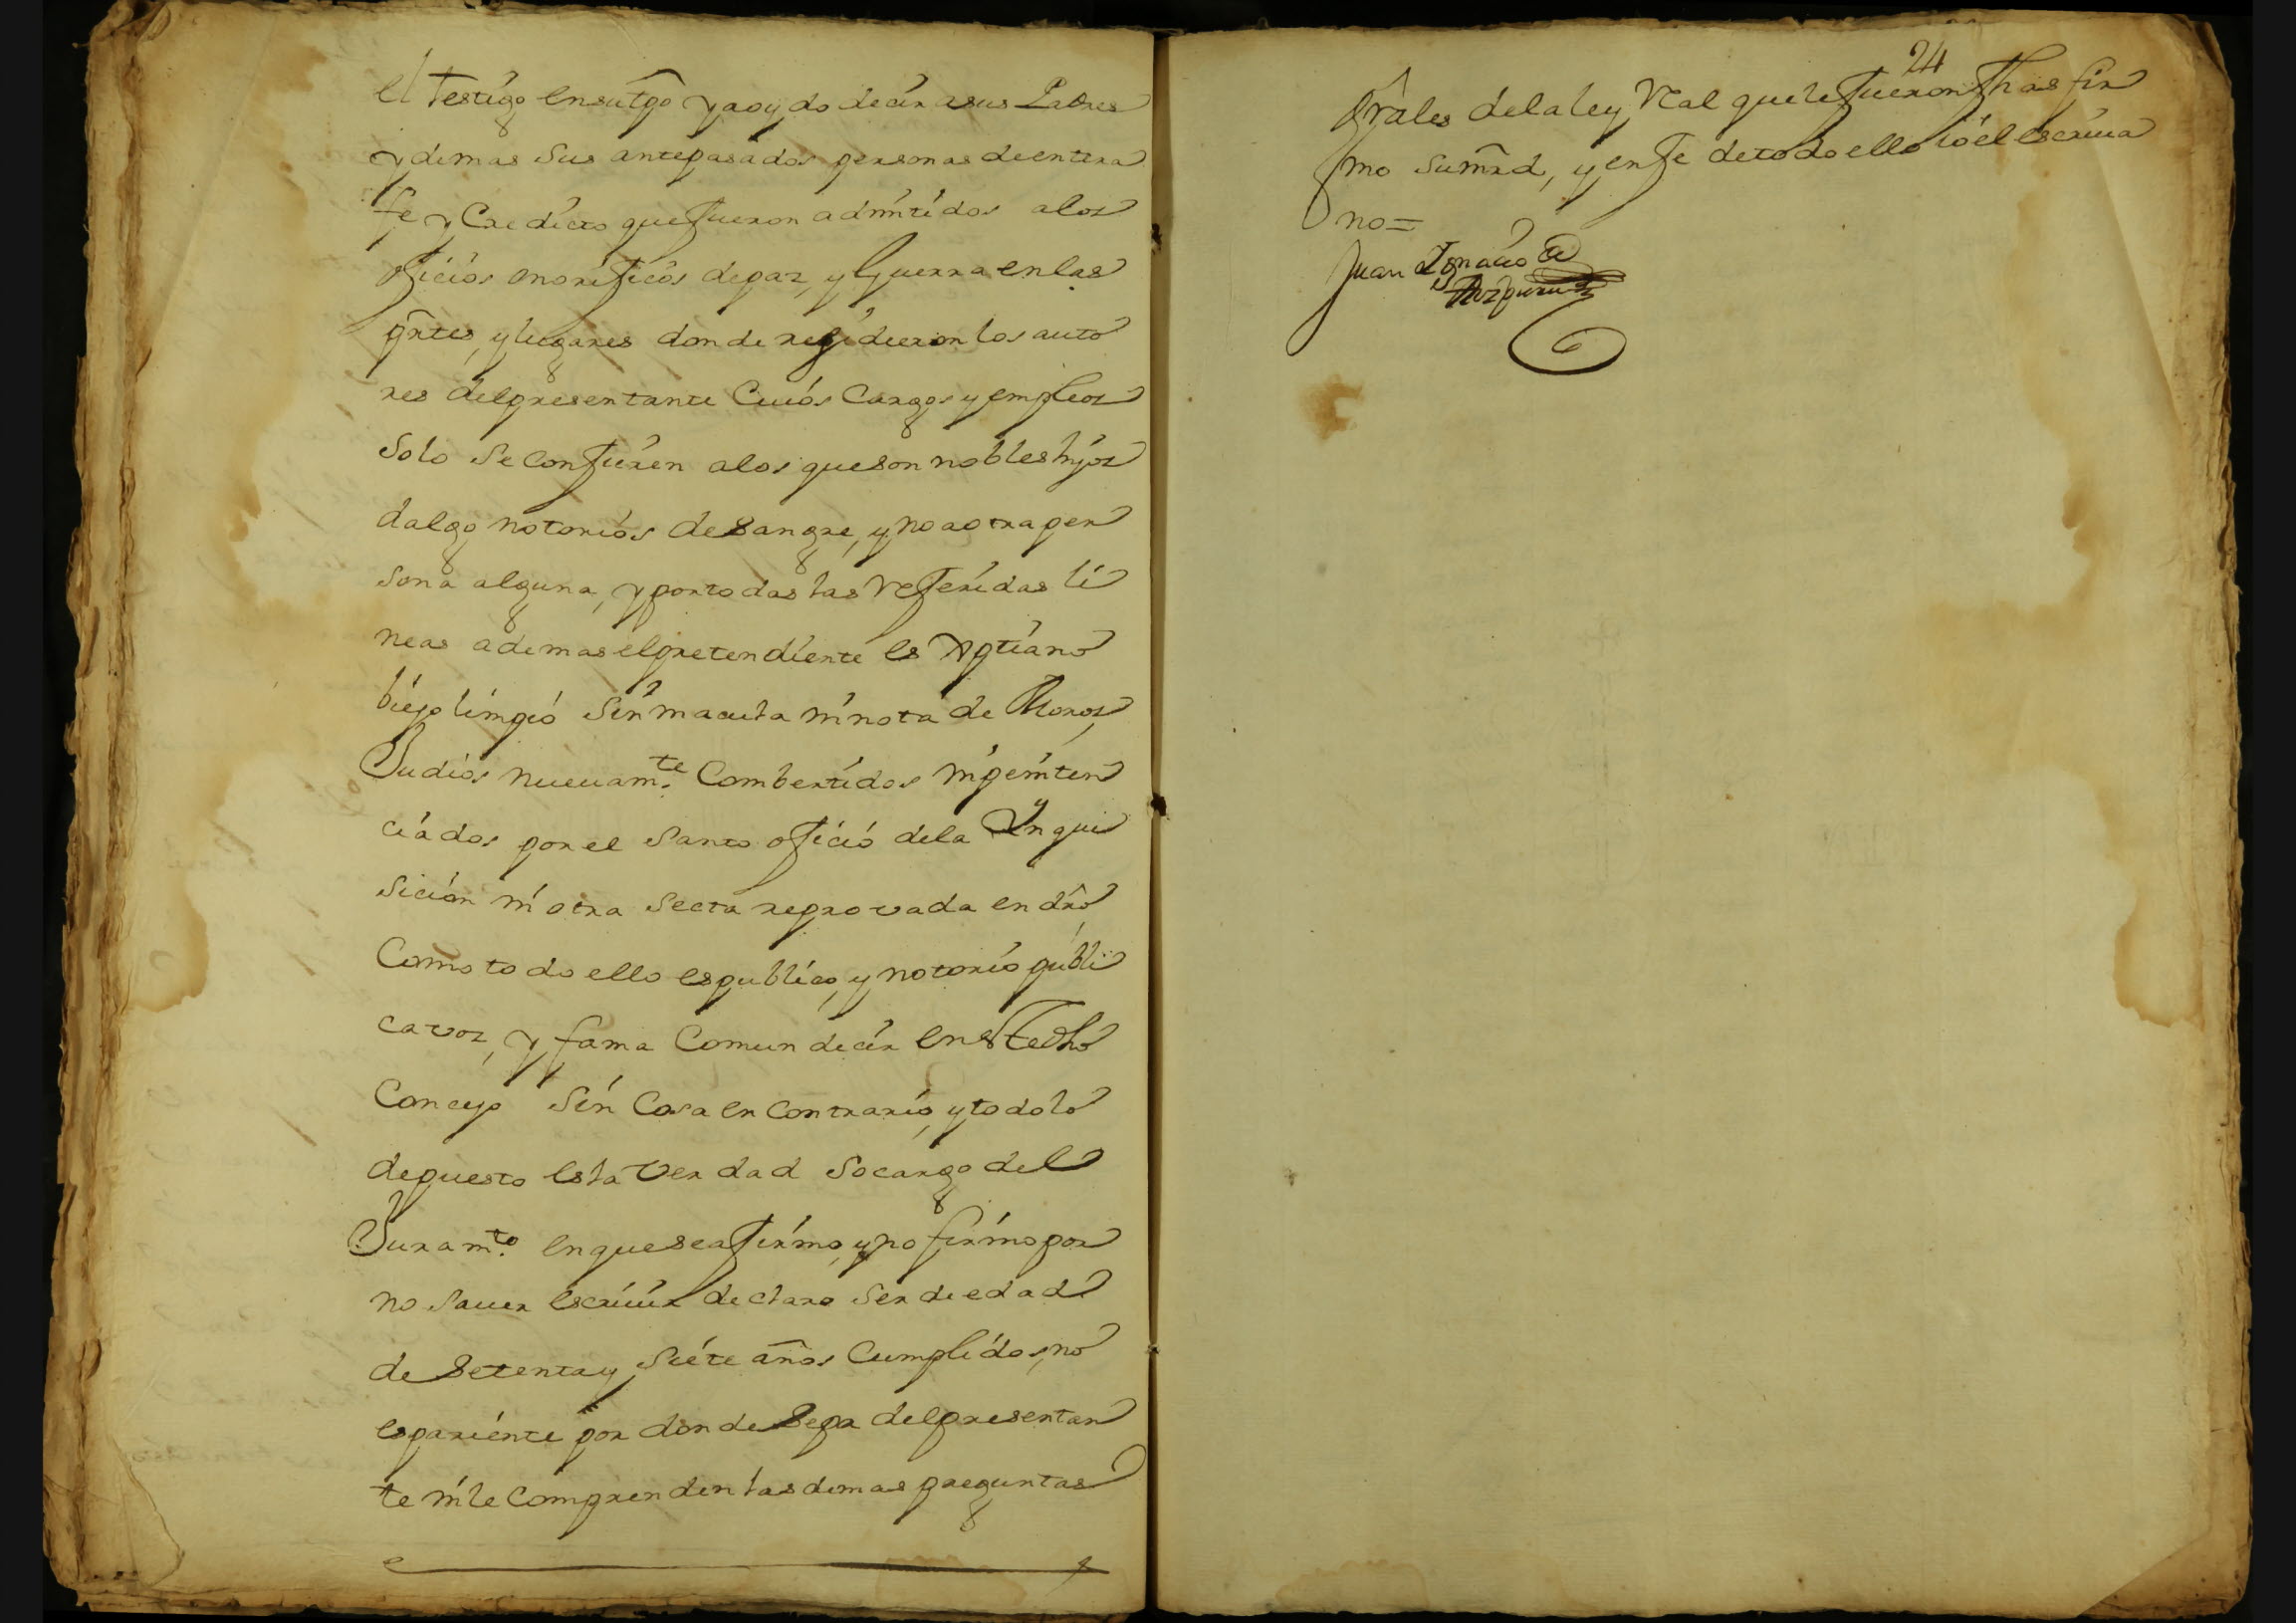 el testigo en su tpô y a oydo decir a sus Padres
y demas sus antepasados personas de entera
fe y Credicto que fueron admitidos a los
oficios onorificos de paz, y Guerra en las
prtes, y lugares donde residieron los auto
res del presentante Cuios Cargos y empleos
Solo se confieren a los que son nobles hijos
dalgo notorios de Sangre, y no a otra per
sona alguna, y por todas las Referidas li
neas ademas el pretendiente es Xptiano
biejo limpio Sin macula ni nota de Moros,
Judios nueuamte. Combertidos ni peniten
ciados por el Santo oficio de la Ynqui
sicion ni otra Secta reprovada en dro
Como todo ello es publico, y notorio publi
ca voz, y fama Comun decir en este dho
Concejo Sin Cosa en Contrario, y todo lo
depuesto es la Verdad So cargo del
Juramto. en que se afirmo, y no firmo por
no sauer escriuir declaro Ser de edad
de Setenta y Siete años Cumplidos, no
es pariente por donde Sepa del presentan
te ni le comprenden las demas preguntas
24
Grâles de la ley Real que le fueron fhas fir
mo Su mrd, y en fe de todo ello io el escriua
no=
Juan Ignacio de
Azpuru